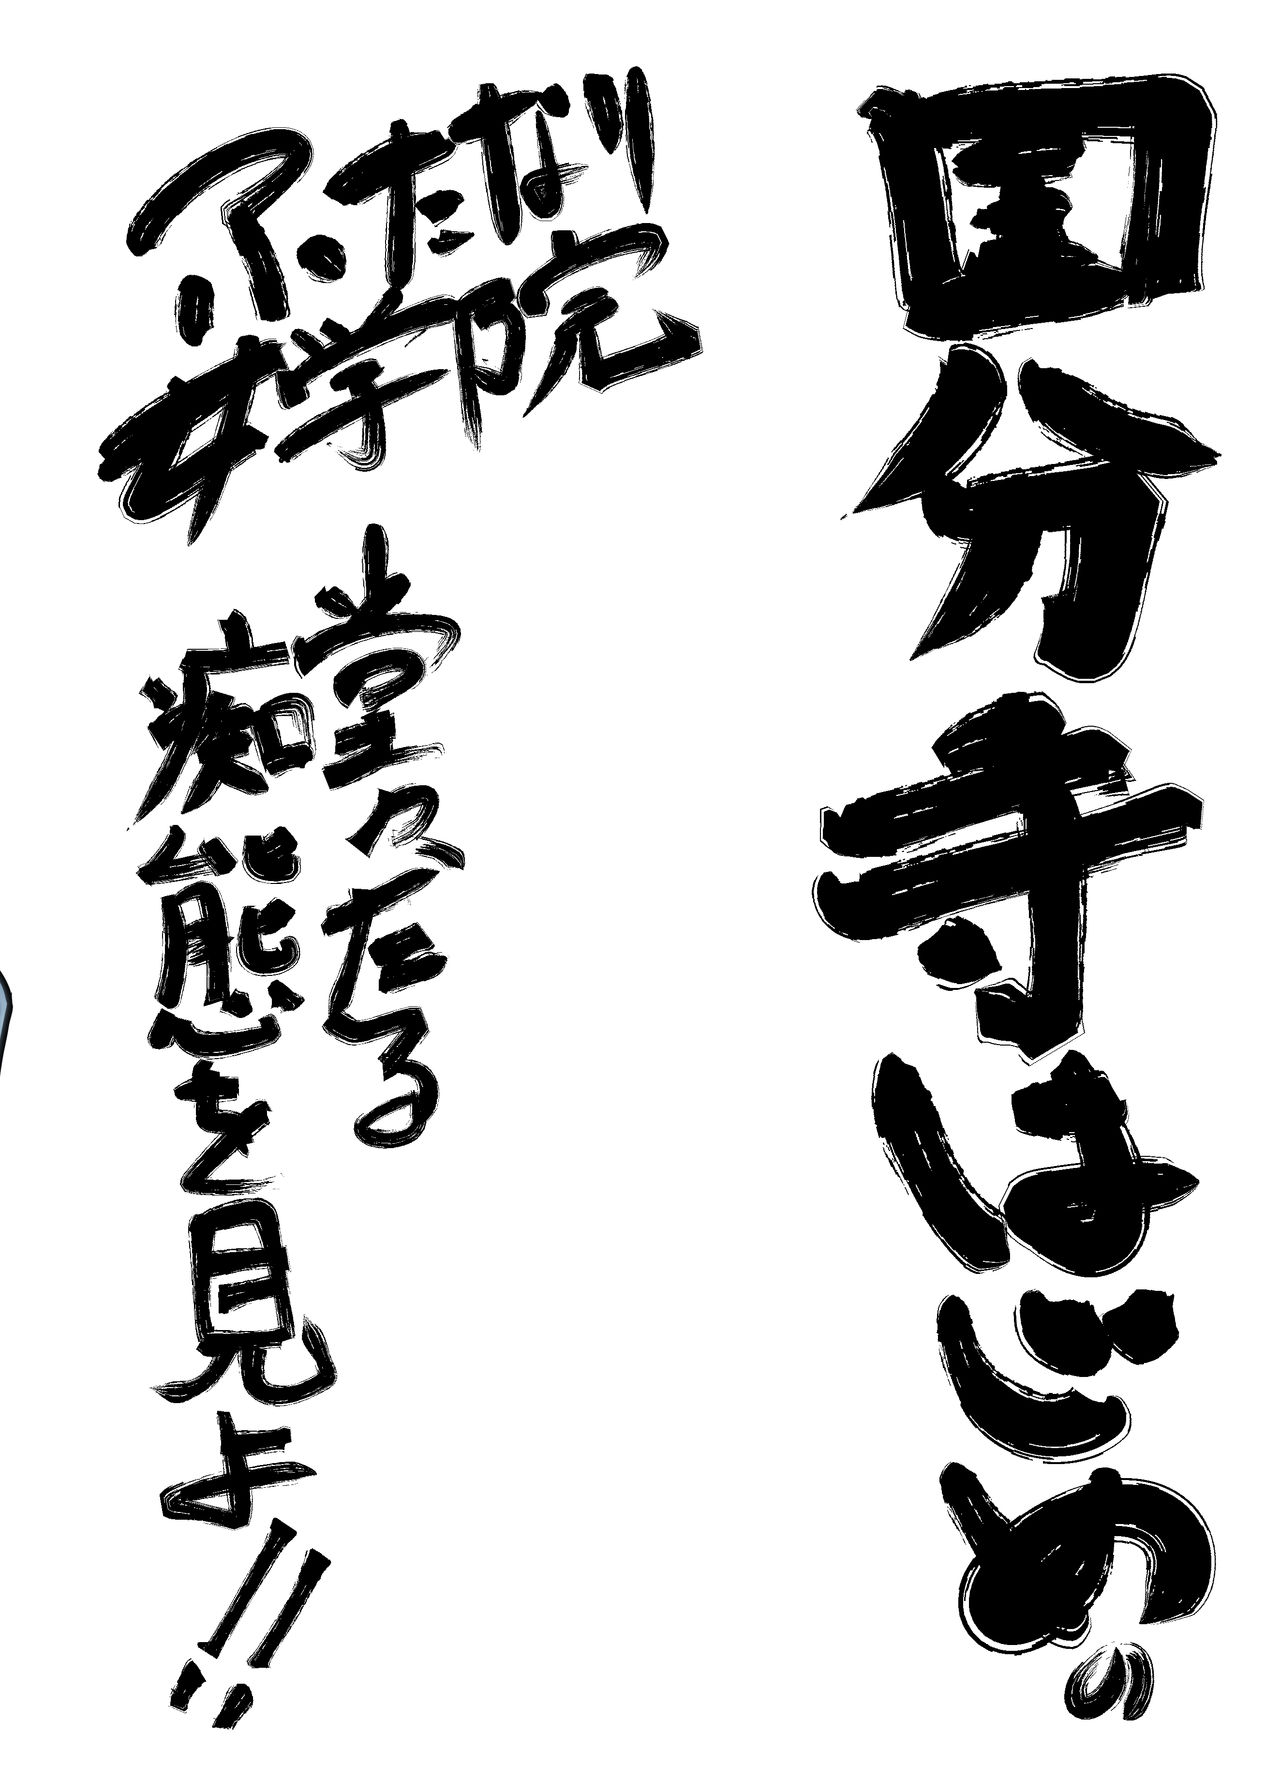 国分寺はじめの
堂々たる
痴態を見よ!!
ふたなり
#学院